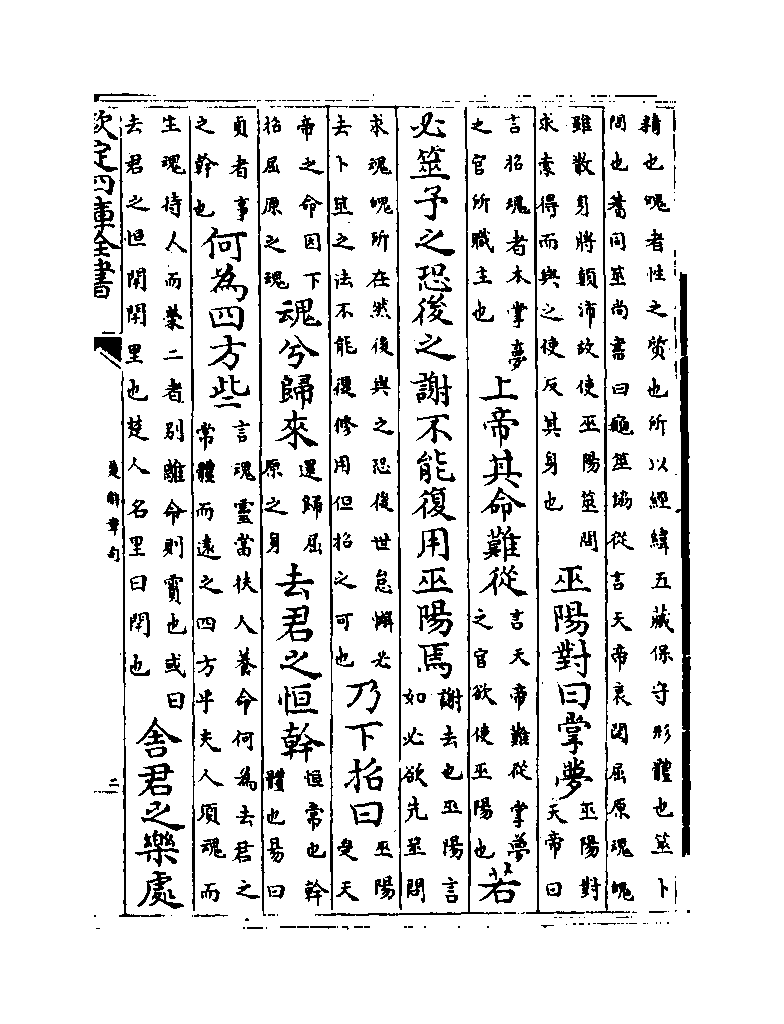 精也魄者性之質也所以經緯五藏保守形體也筮卜
問也蓍曰筮尚書曰龜筮協從言天帝哀閔屈原魂魄
雖散身將顛沛故使巫陽筮問
求索得而與之使反其身也
巫陽對曰掌夢
巫陽對
天帝曰
言招魂者本掌夢
之官所職主也
上帝其命難從
言天帝難從掌夢
之官欲使巫陽也
若
必筮予之恐後之謝不能復用巫陽焉
謝去也巫陽言
如必欲先筮問
求魂魄所在然後與之恐後世怠懈必
去卜筮之法不能復修用但招之可也
乃下招曰
巫陽
受天
帝之命因下
招屈原之魂
魂兮歸來
還歸屈
原之身
去君之恒幹
恒常也幹
體也易曰
貞者事
之幹也
何為四方些
言魂靈當扶人養命何為去君之
常體而遠之四方乎夫人須魂而
生魂待人而榮二者別離命則霣也或曰
去君之恒閈閈里也楚人名里曰閈也
舍君之樂處
欽定四庫全書
楚辭章句
二